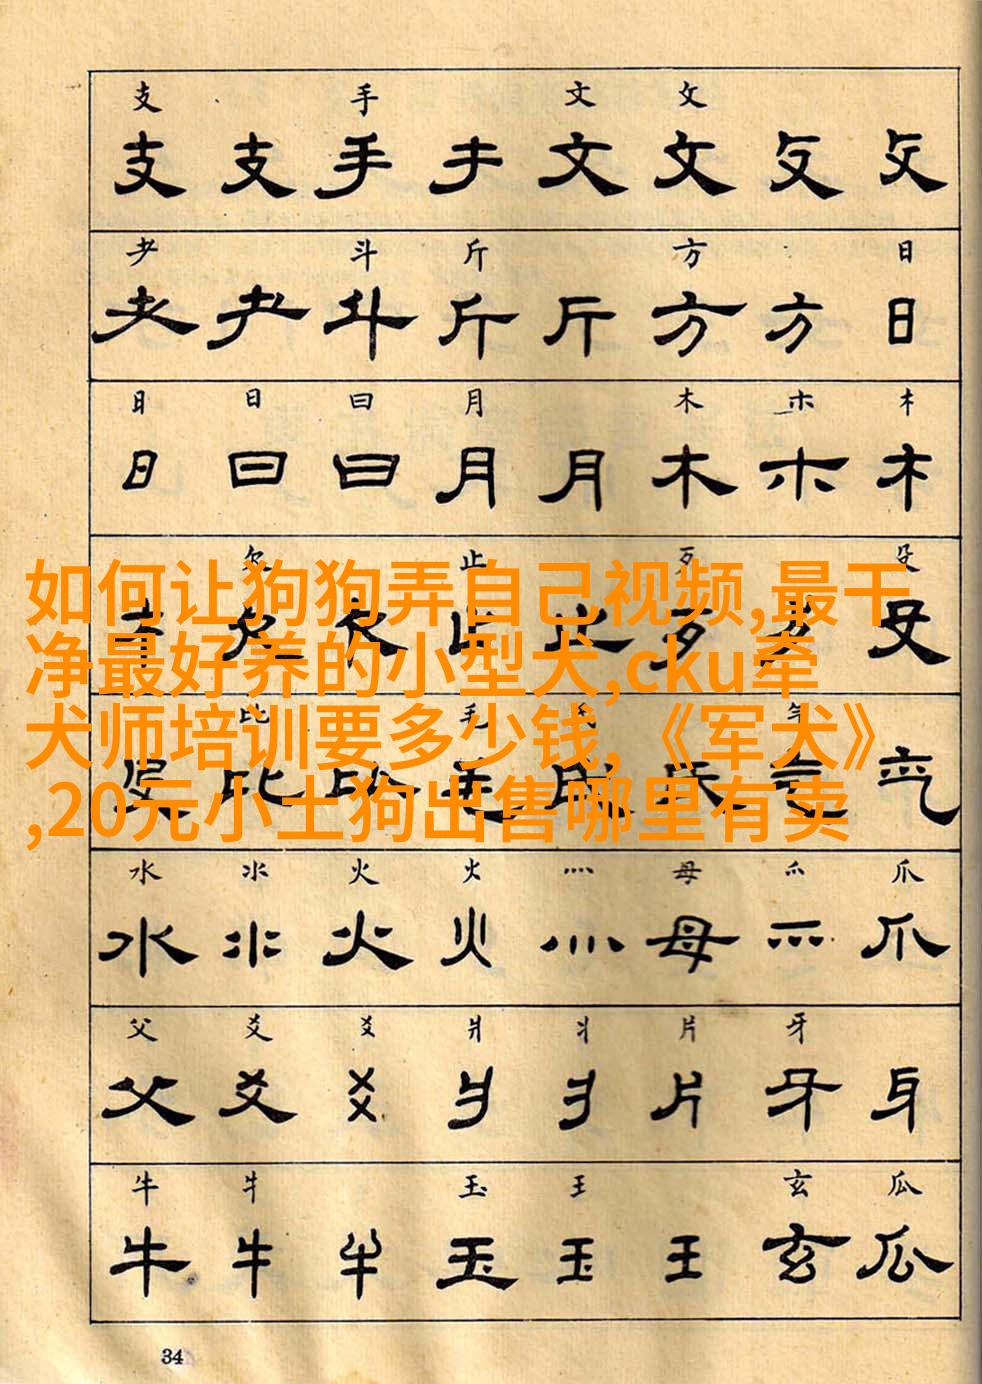 支 手 文 攵
支 支 手 文 攵
耂 斗 斤 方 日
斗 斤 斤 方 方 日
日 日 曰 月 木 朩
日 曰 曰 月 月 木 朩
欠 止 歹 殳
如何让狗狗弄自己视频,最干
净最好养的小型犬,cku牵
比 毛 气
犬师培训要多少钱,《军犬》
,20元小土狗出售哪里有卖
水 氺 火 火 灬 母 爫 爪
水 氺 火 火 灬 母 爪
父 爻 爻 爿 丬 片 牙
父 爻 爻 爿 片 牙
牛 牜 玉 王 玄 瓜
牛 牛 玉 玉 王 玄 瓜
34